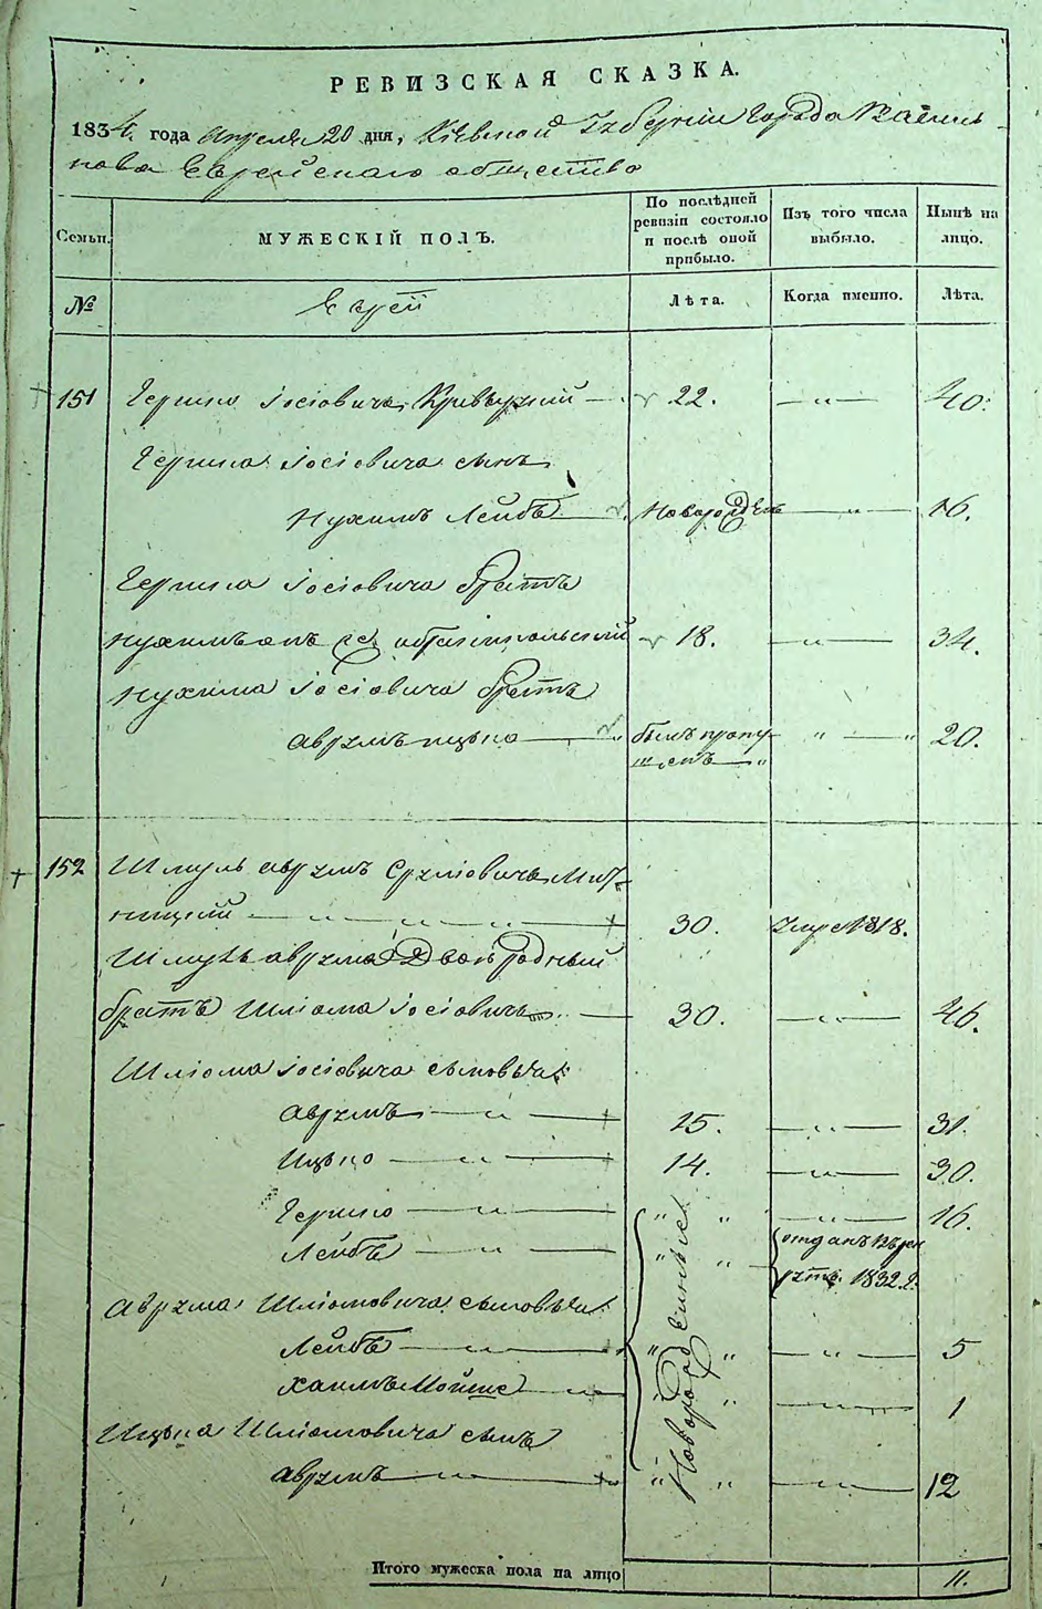 РЕВИЗСКАЯ СКАЗКА.
1834 года Апреля 20 дня, Кіевской Губерніи Города Василь-
кова Еврейскаго общества
Семьи. МУЖЕСКІЙ ПОЛЪ. По послѣдней ревизіи состояло и послѣ оной прибыло. Изъ того числа выбыло. Нынѣ на лицо.
№ Евреи Лѣта. Когда именно. Лѣта.
151 Гершко Іосіовичъ 22. —"— 40.
Гершка Іосіовича сынъ
Нухимъ Лейбъ — Новорожден —"— 16.
Гершка Іосіовича братъ
18. —"— 34.
Нухима Іосіовича братъ
Аврумъ Ицько — былъ пропу- "—" 20.
щенъ — "
152 Шмуль Аврумъ Сруліовичъ
ницкій —"—"—"— 30. умре 1818.
Шмуль Аврума Двоюродный
братъ Шліома Іосіовичъ — 30. —"— 46.
Шліома Іосіовича сыновья:
Аврумъ —"— 15. —"— 31.
Ицько —"— 14. —"— 30.
Гершко —"— " " —"— 16.
Лейбъ —"— " " отданъ въ рек
руты 1832. г.
Новорожденные
Аврума Шліомовича сыновья:
Лейбъ —"— " " —"— 5
Хаимъ Мойше —"— " " —"— 1
Ицька Шліомовича сынъ
Аврумъ —"— " " —"— 12
Итого мужеска пола на лицо 11.